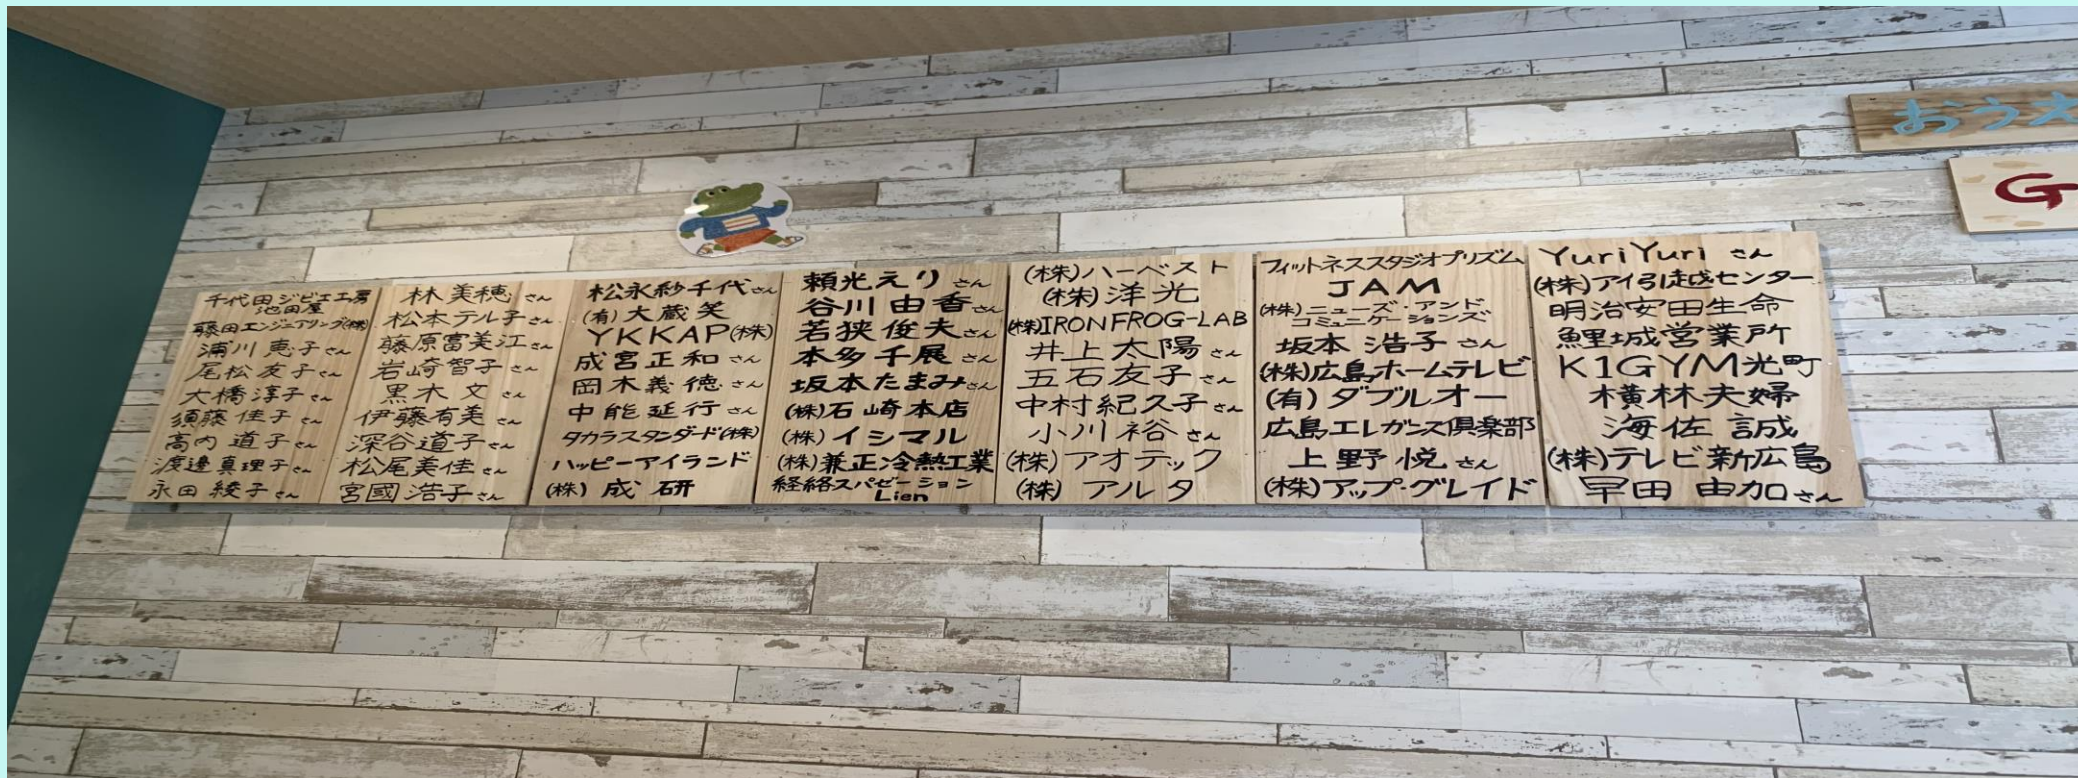 おうえ
G
千代田ジビエ工房
池田屋
藤田エンジニアリング(株)
浦川恵子さん
尾松友子さん
大橋淳子さん
須藤佳子さん
高内道子さん
渡邉真理子さん
永田綾子さん
林美穂さん
松本テル子さん
藤原富美江さん
岩崎智子さん
黒木文さん
伊藤有美さん
深谷道子さん
松尾美佳さん
宮國浩子さん
松永紗千代さん
(有)大蔵笑
YKKAP(株)
成宮正和さん
岡木義徳さん
中能延行さん
タカラスタンダード(株)
ハッピーアイランド
(株)成研
頼光えりさん
谷川由香さん
若狭俊夫さん
本多千展さん
坂本たまみさん
(株)石崎本店
(株)イシマル
(株)兼正冷熱工業
経絡スパゼーション
Lien
(株)ハーベスト
(株)洋光
(株)IRON FROG-LAB
井上太陽さん
五石友子さん
中村紀久子さん
小川裕さん
(株)アオテック
(株)アルタ
フィットネススタジオプリズム
JAM
(株)ニューズ・アンド
コミュニケーションズ
坂本浩子さん
(株)広島ホームテレビ
(有)ダブルオー
広島エレガンス倶楽部
上野悦さん
(株)アップ・グレイド
YuriYuriさん
(株)アイ引越センター
明治安田生命
鯉城営業所
K1GYM光町
横林夫婦
海佐誠
(株)テレビ新広島
早田由加さん